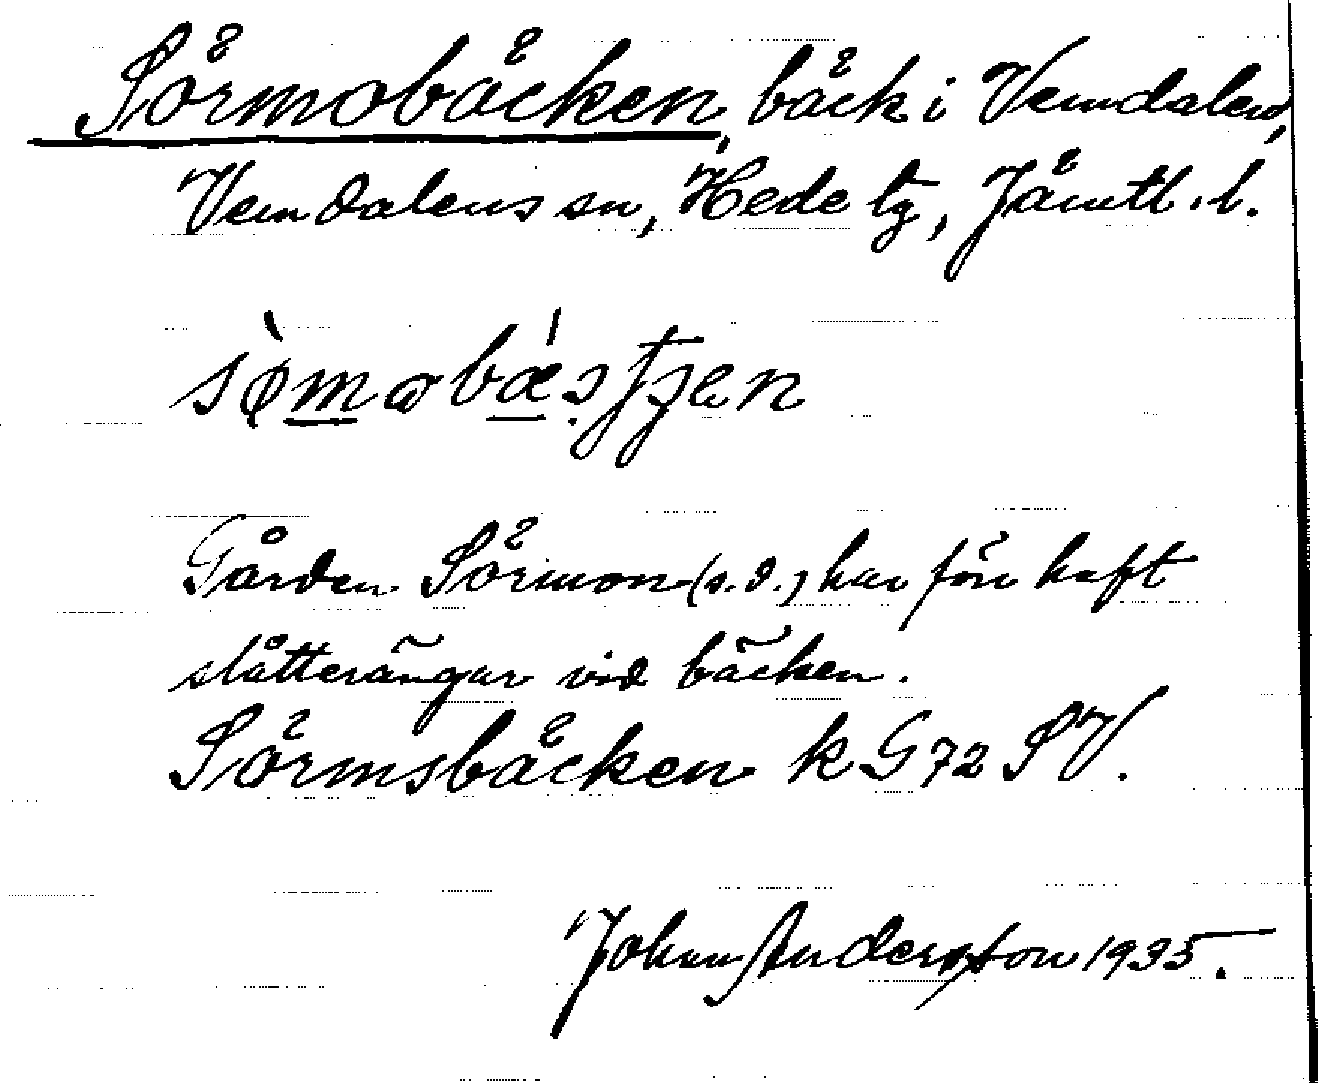 Sörmobäcken, bäck i Vemdalen,
Vemdalens sn, Hede tg, Jämtl. l.
Gården Sörmon (s.d.) har förr haft
slåtterängar vid bäcken.
Sörmsbäcken k G72 SV.
Johan Andersson 1935.